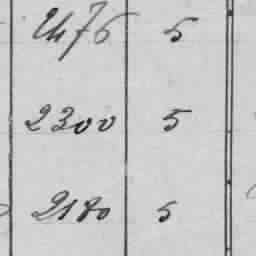 2475 5
2300 5
2180 5